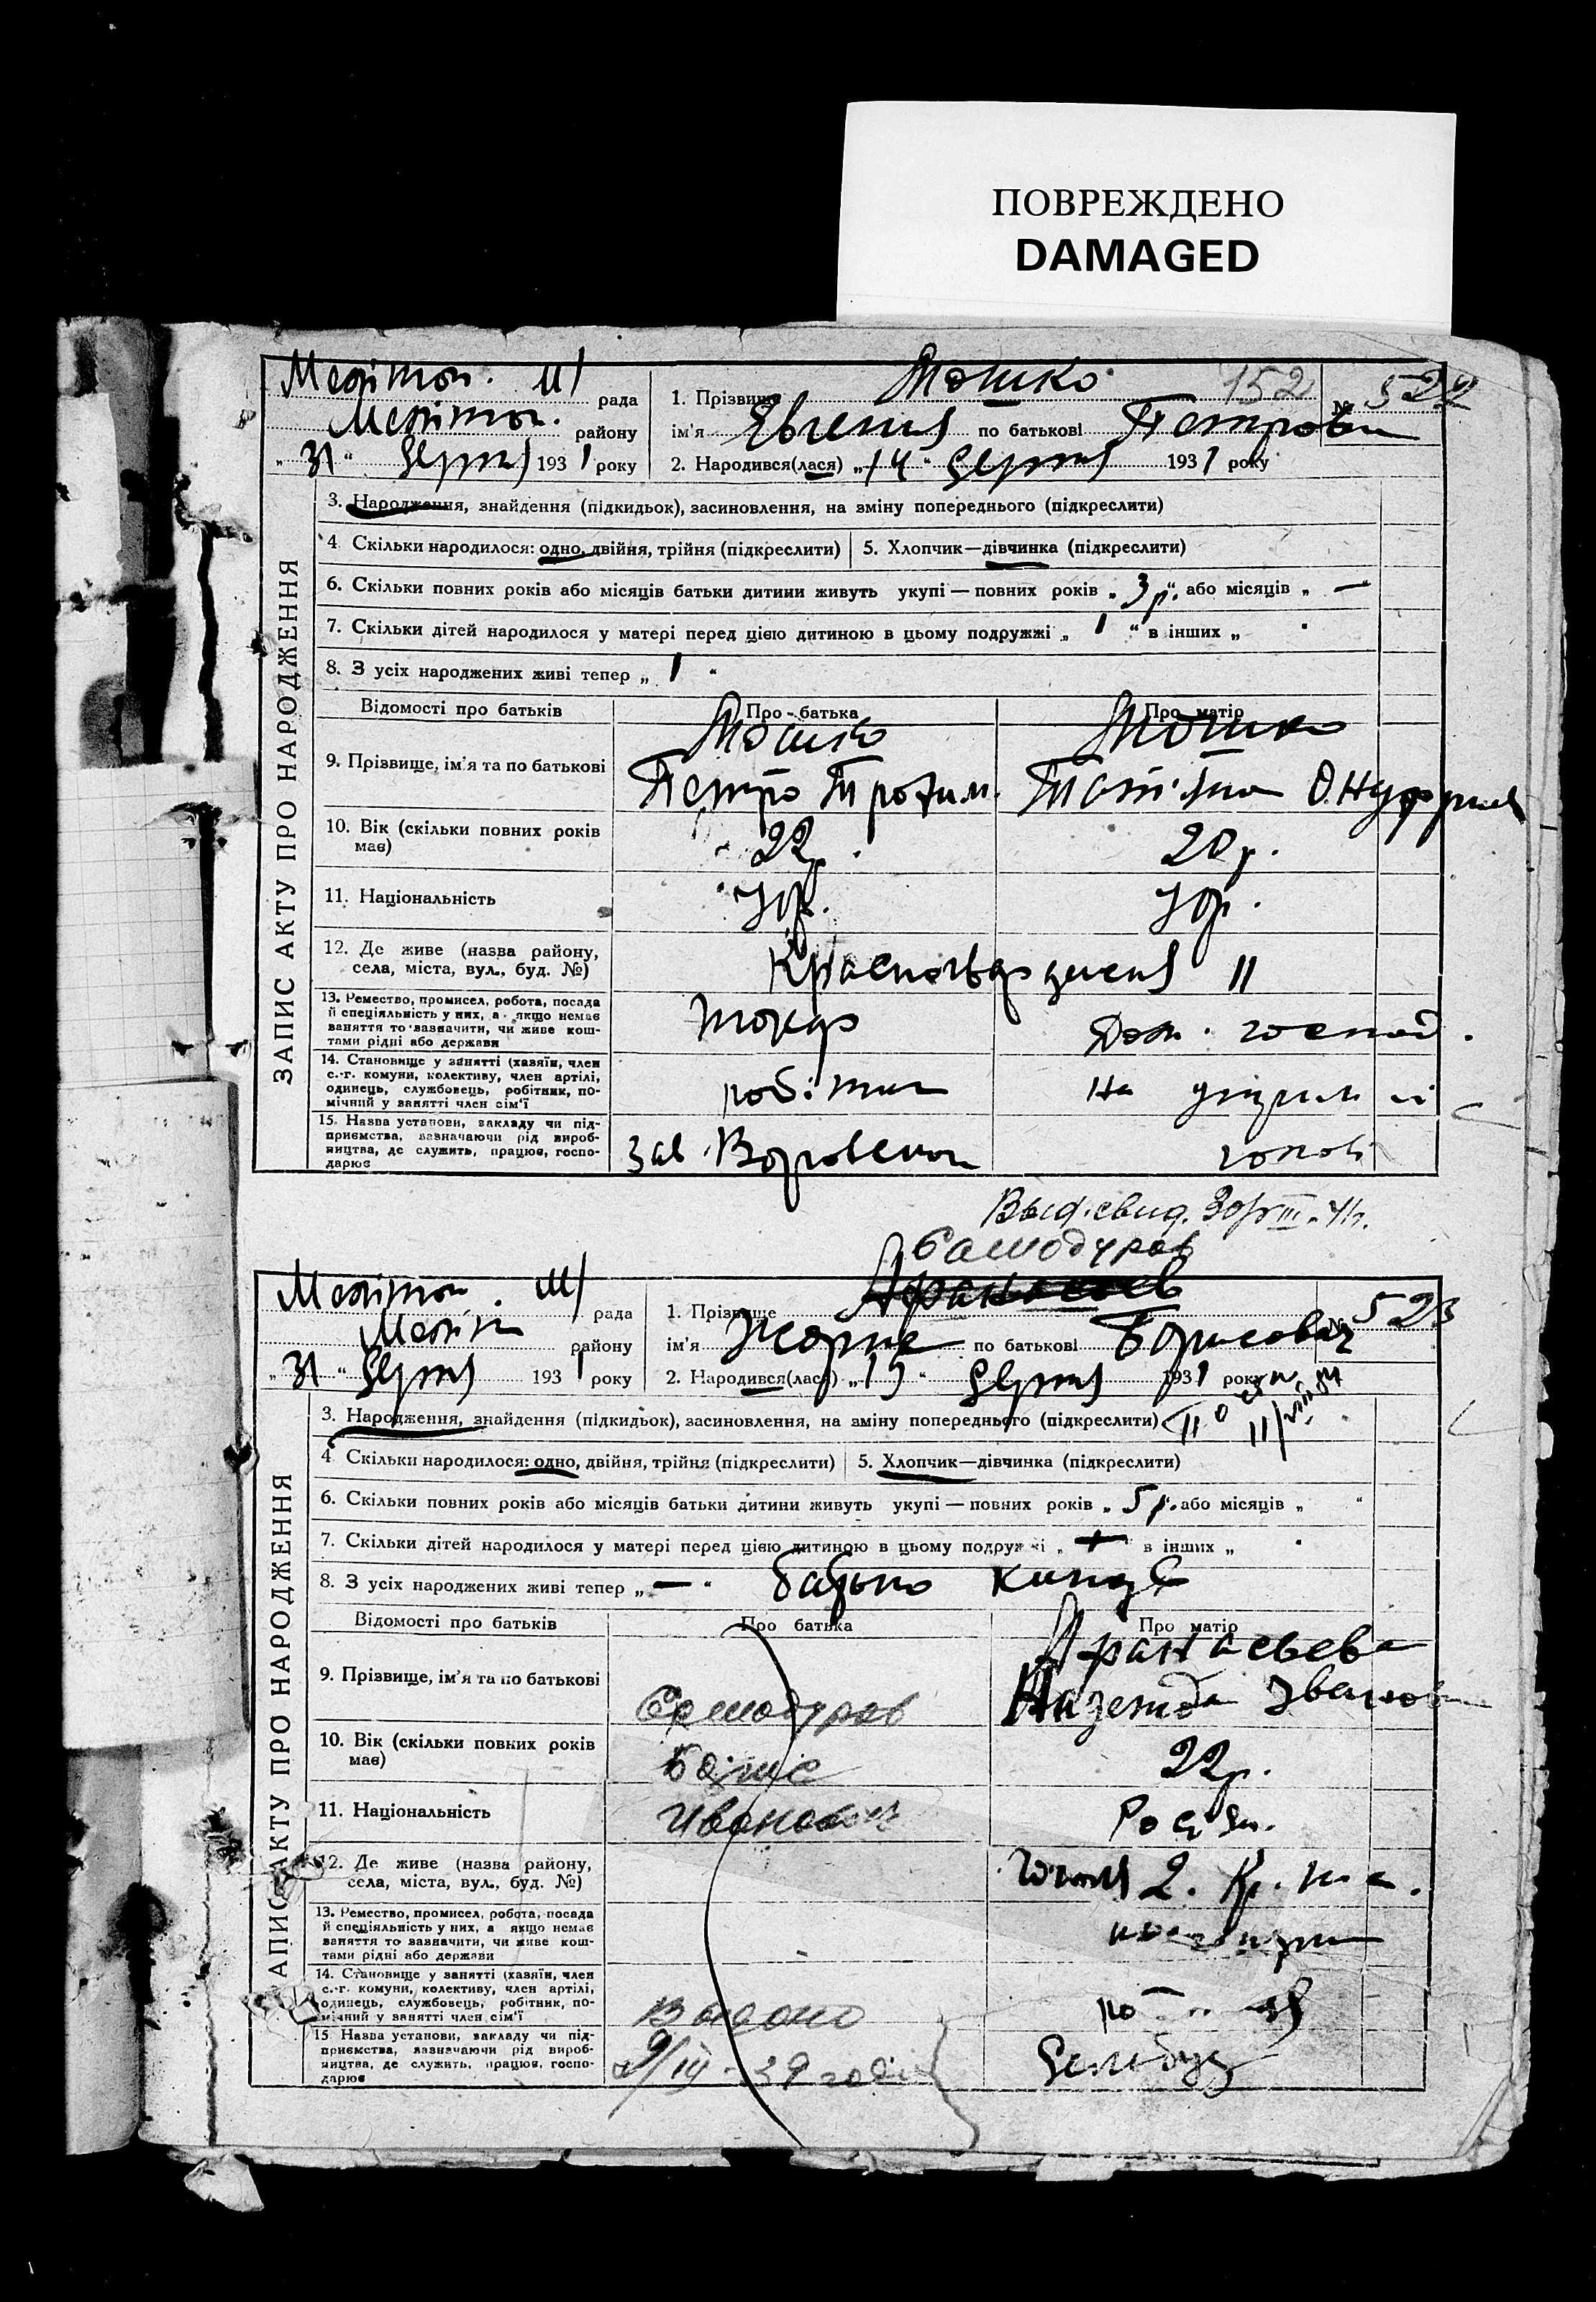 ПОВРЕЖДЕНО
DAMAGED
Мелітоп. М/ рада
Мелітоп. району
„ 31 “ Серпня 1931 року
1. Прізвище Тошко 152
ім'я Євгенія по батькові Петровна
№ 522
2. Народився(лася) „14“ Серпня 1931 року
ЗАПИС АКТУ ПРО НАРОДЖЕННЯ
3. Народження, знайдення (підкидьок), засиновлення, на зміну попереднього (підкреслити)
4 Скільки народилося: одно, двійня, трійня (підкреслити) 5. Хлопчик—дівчинка (підкреслити)
6. Скільки повних років або місяців батьки дитини живуть укупі — повних років „ 3 р. “ або місяців „ —
7. Скільки дітей народилося у матері перед цією дитиною в цьому подружжі „ 1 “ в інших „
8. З усіх народжених живі тепер „ 1 “
Відомості про батьків Про батька Про матір
9. Прізвище, ім'я та по батькові
Тошко Тошко
Петро Трофим.
10. Вік (скільки повних років має) 22 р. 20 р.
11. Національність Укр. Укр.
12. Де живе (назва району, села, міста, вул., буд. №) Красногвардійська 11
13. Ремество, промисел, робота, посада й спеціяльність у них, а якщо немає заняття то зазначити, чи живе коштами рідні або держави
токар Дом. господ.
14. Становище у занятті (хазяїн, член с.-г. комуни, колективу, член артілі, одинець, службовець, робітник, помічний у занятті член сім'ї
робітник На утрим
15. Назва установи, закладу чи підприємства, зазначаючи рід виробництва, де служить, працює, господарює
Зав. Воровского
Выд. свид.
Самодуров
Мелітоп. М/ рада
Меліт району
„ 31 “ Серпня 1931 року
1. Прізвище Афанасьев
ім'я Жорж по батькові Борисович
№ 523
2. Народився(лася) „ 19 “ Серпня 1931 року
ЗАПИС АКТУ ПРО НАРОДЖЕННЯ
3. Народження, знайдення (підкидьок), засиновлення, на зміну попереднього (підкреслити)
4 Скільки народилося: одно, двійня, трійня (підкреслити) 5. Хлопчик—дівчинка (підкреслити)
6. Скільки повних років або місяців батьки дитини живуть укупі — повних років „ 5 р. або місяців „ “
7. Скільки дітей народилося у матері перед цією дитиною в цьому подружжі „ “ в інших „
8. З усіх народжених живі тепер „ — “ батько кинув
Відомості про батьків Про батька Про матір
9. Прізвище, ім'я та по батькові
Афанасьева
Самодуров Надежда Ивановна
10. Вік (скільки повних років має) Борис 22 р.
11. Національність Иванович Росіян.
12. Де живе (назва району, села, міста, вул., буд. №)
13. Ремество, промисел, робота, посада й спеціяльність у них, а якщо немає заняття то зазначити, чи живе коштами рідні або держави
14. Становище у занятті (хазяїн, член с.-г. комуни, колективу, член артілі, одинець, службовець, робітник, помічний у занятті член сім'ї
Видано
15 Назва установи, закладу чи підприємства, зазначаючи рід виробництва, де служить, працює, господарює